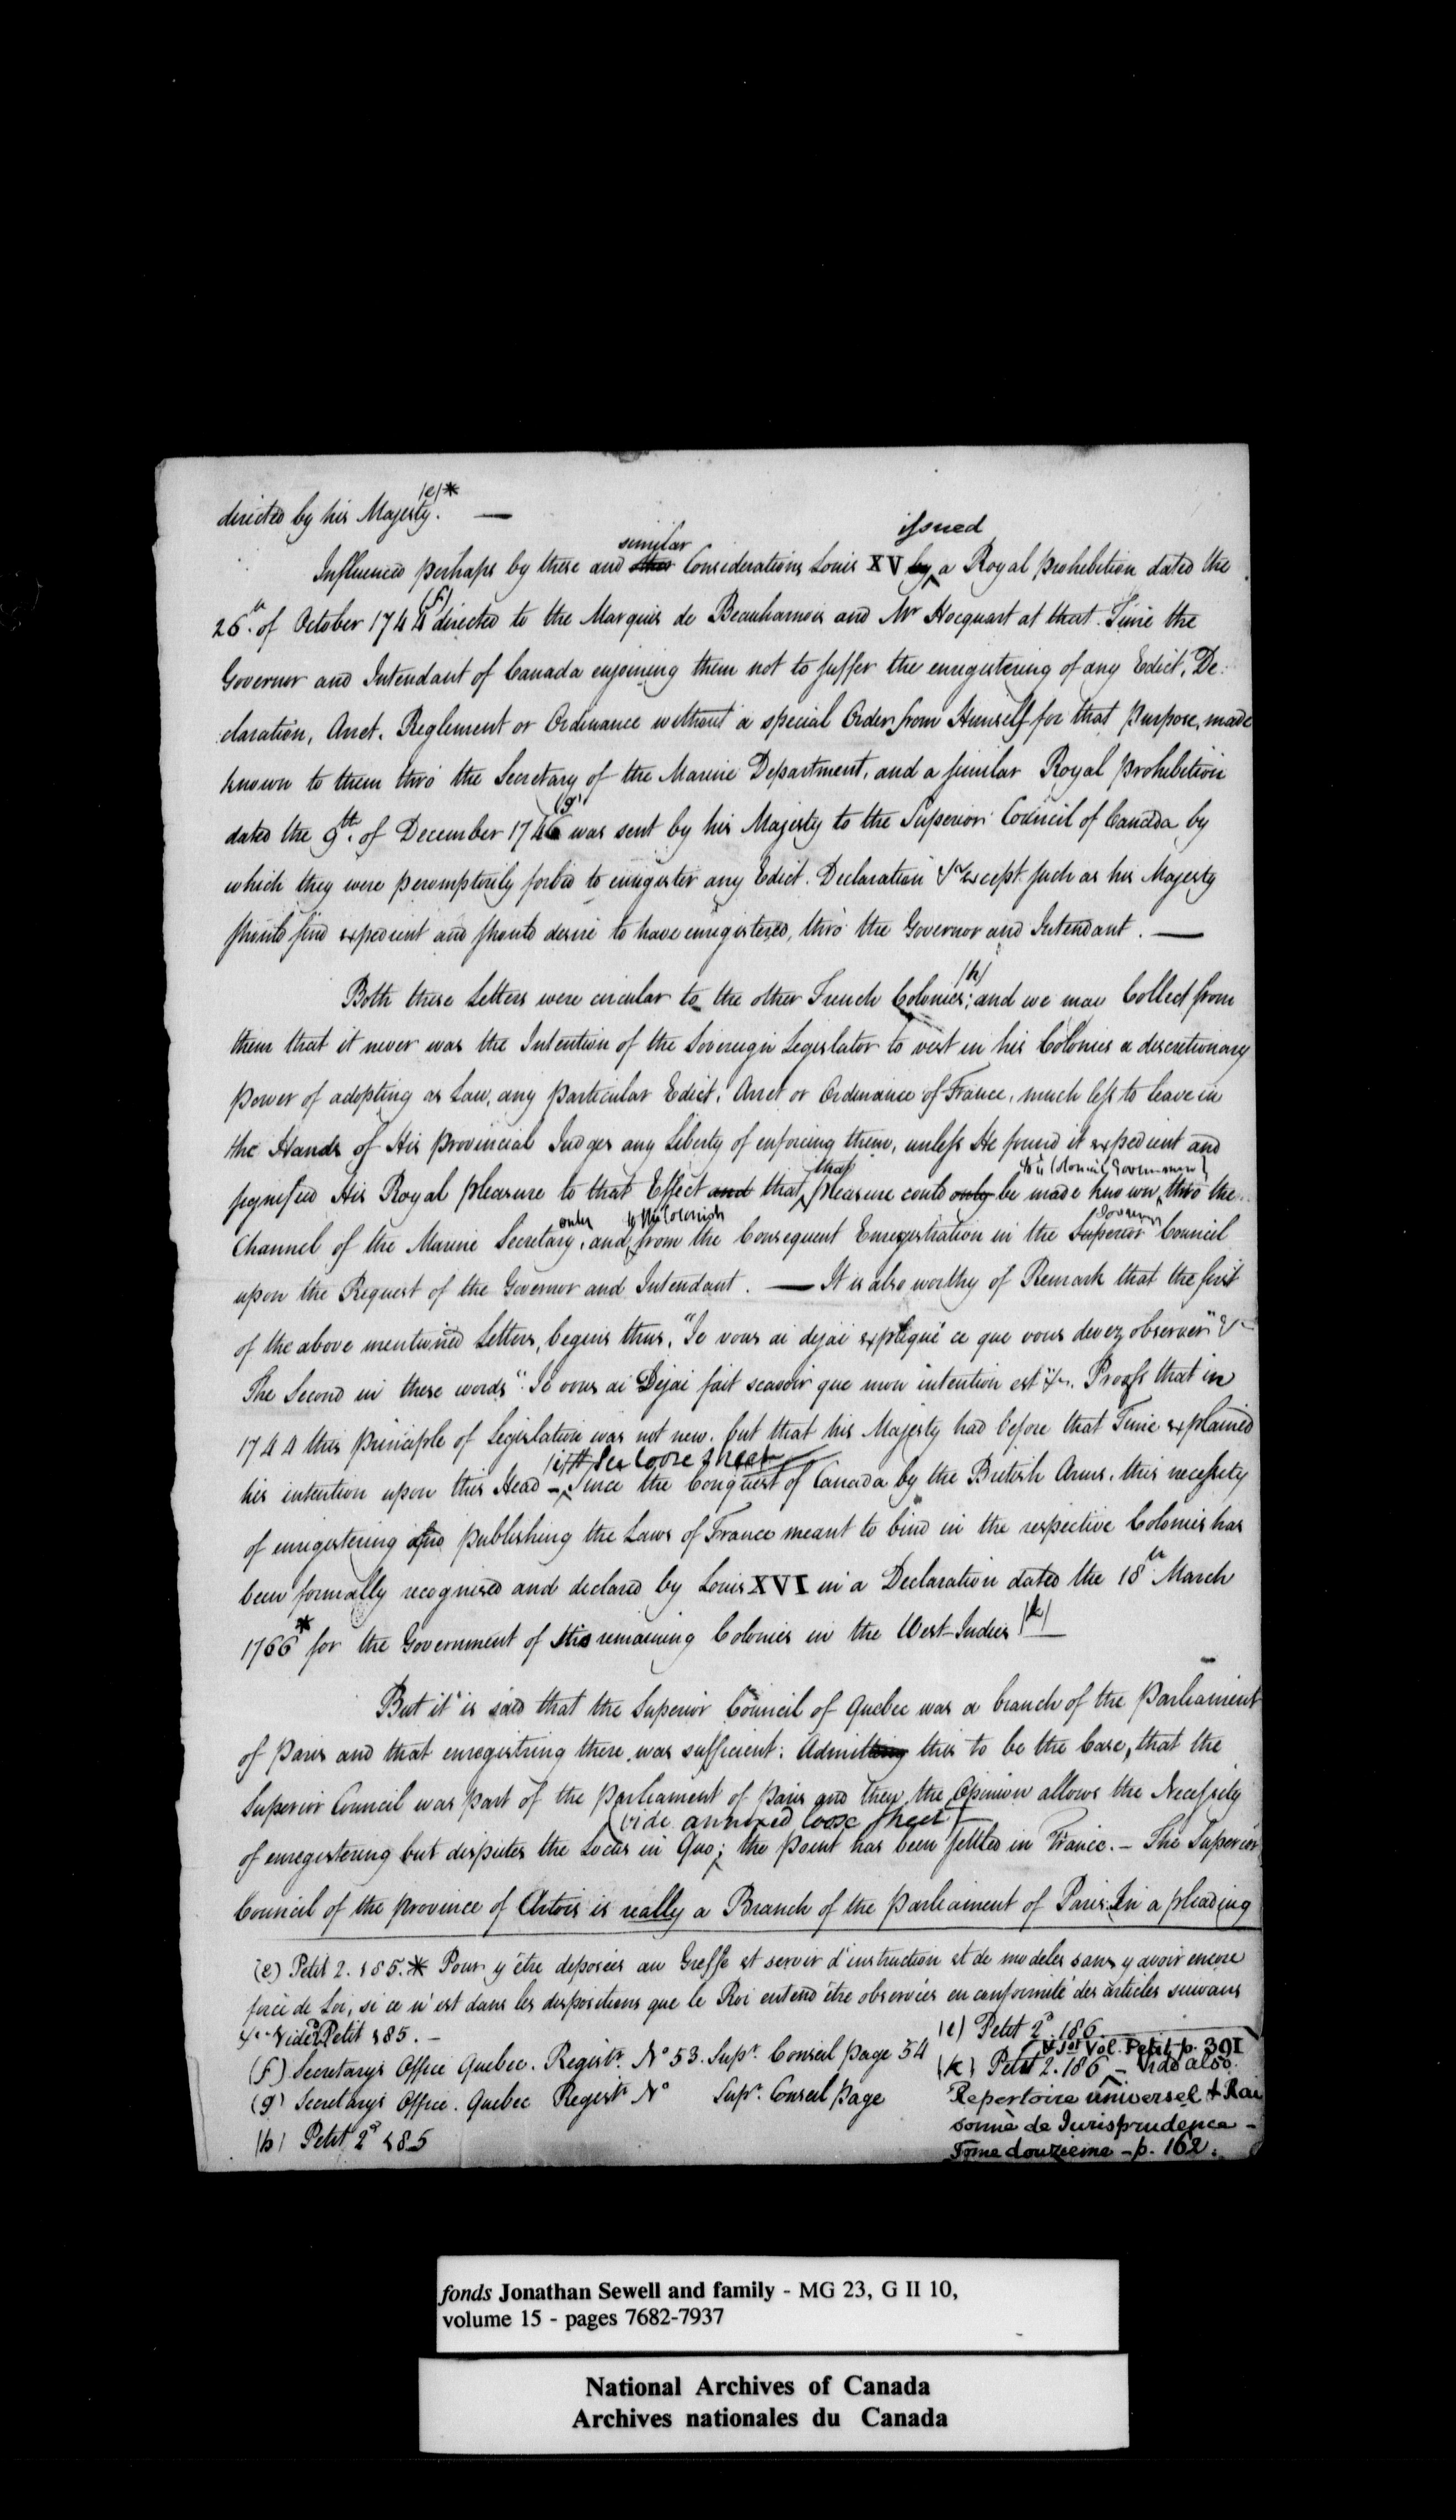 directed by his Majesty. (e)* —
Influenced perhaps by these and other similar Considerations Louis XV by issued a Royal prohibition dated the
26th of October 1744 (f) directed to the Marquis de Beauharnois and Mr Hocquart at that Time the
Governor and Intendant of Canada enjoining them not to suffer the enregistering of any Edict, De-
claration, Arret, Reglement or Ordinance without a special Order from Himself for that purpose, made
known to them thro' the Secretary of the Marine Department, and a similar Royal prohibition
dated the 9th of December 1746 (g) was sent by his Majesty to the Superior Council of Canada by
which they were peremptorily forbid to enregister any Edict. Declaration &c except such as his Majesty
should find expedient and should desire to have enregistered, thro' the Governor and Intendant. —
Both these Letters were circular to the other French Colonies; (h) and we may Collect from
them that it never was the Intention of the Sovereign Legislator to vest in his Colonies a discretionary
power of adopting as Law, any particular Edict, Arret or Ordinance of France, much less to leave in
the Hands of His provincial Judges any Liberty of enforcing them, unless He found it expedient and
signified His Royal pleasure to that Effect and that, that pleasure could only be made known to the Colonial Government thro the
Channel of the Marine Secretary, only and to the Colonists from the Consequent Enregistration in the Superior Sovereign Council
upon the Request of the Governor and Intendant. — It is also worthy of Remark that the first
of the above mentioned Letters, begins thus, "Je vous ai dejai expliqué ce que vous devez observer" &c
The Second in these words "Je vous ai Dejai fait scavoir que mon intention est" &c. Proofs that in
1744 this principle of Legislation was not new, but that his Majesty had before that Time explained
his intention upon this Head – See loose sheet Since the Conquest of Canada by the British Arms, this necessity
of enregistering and publishing the Laws of France meant to bind in the respective Colonies has
been formally recognised and declared by Louis XVI in a Declaration dated the 18th March
1766* for the Government of the remaining Colonies in the West-Indies (k)
But it is said that the Superior Council of Quebec was a branch of the Parliament
of Paris and that enregistring there was sufficient: Admitting this to be the Case, that the
Superior Council was part of the Parliament of Paris and they, the Opinion allows the Necessity
of enregistering but disputes the Locus in Quo; (vide annexed loose sheet) the point has been settled in France. – The Superior
Council of the province of Artois is really a Branch of the Parliament of Paris. In a pleading
(e) Petit 2. 185. * Pour y être deposées au Greffe et servir d'instruction et de modeles sans y avoir encore
force de Loi, si ce n'est dans les dispositions que le Roi entend être observées en conformité des articles suivans
&c. Vide 2d Petit 185. –
(f) Secretarys Office Quebec. Registr. No 53. Supr. Conseil page 54
(g) Secretarys Office. Quebec Registr No Supr. Conseil page
(h) Petit 2d 185
(e) Petit 2d. 186.
(k) Petit 2. 186 – V 1st Vol. Petit p. 391 Vide also
Repertoire universel & Rai
sonnè de Jurisprudence –
Tome douzieme – p. 162.
fonds Jonathan Sewell and family - MG 23, G II 10,
volume 15 - pages 7682-7937
National Archives of Canada
Archives nationales du Canada